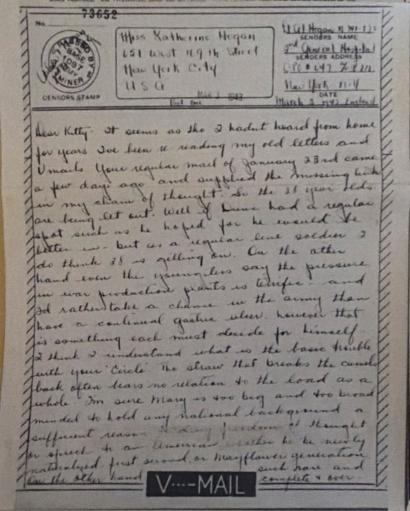 73652
No.
PASSED BY
BASE
1097
ARMY
EXAMINER
CENSORS STAMP
Miss Katherine Hogan
651 West 169th Street
New York City
U S A
Lt Col Hogan
SENDERS NAME
2nd General Hospital
SENDERS ADDRESS
APO # 647
New York N.Y
DATE
March 2 1943 England
Dear Kitty - It seems as tho I hadn't heard from home
for years I've been re reading my old letters and
Vmails Your regular mail of January 23rd came
a few days ago and supplied the missing link
in my chain of thought. So the 38 year olds
are being let out. Well if had a regular
spot such as he hoped for he would be
better in - but as a regular line soldier I
do think 38 is getting on. On the other
hand even the youngsters say the pressure
in war production plants is terrific - and
I'd rather take a chance in the army than
have a continual gastric ulcer. however that
is something each must decide for himself.
I think I understand what is the basic trouble
with your 'Circle' The straw that breaks the camels
back often bears no relation to the load as a
whole. I'm sure Mary is too big and too broad
minded to hold any national background a
sufficient reason to deny freedom of thought
or speech to an American whether he be newly
naturalized, first second, or Mayflower generation
On the other hand such hare and
complete & over
V···-MAIL